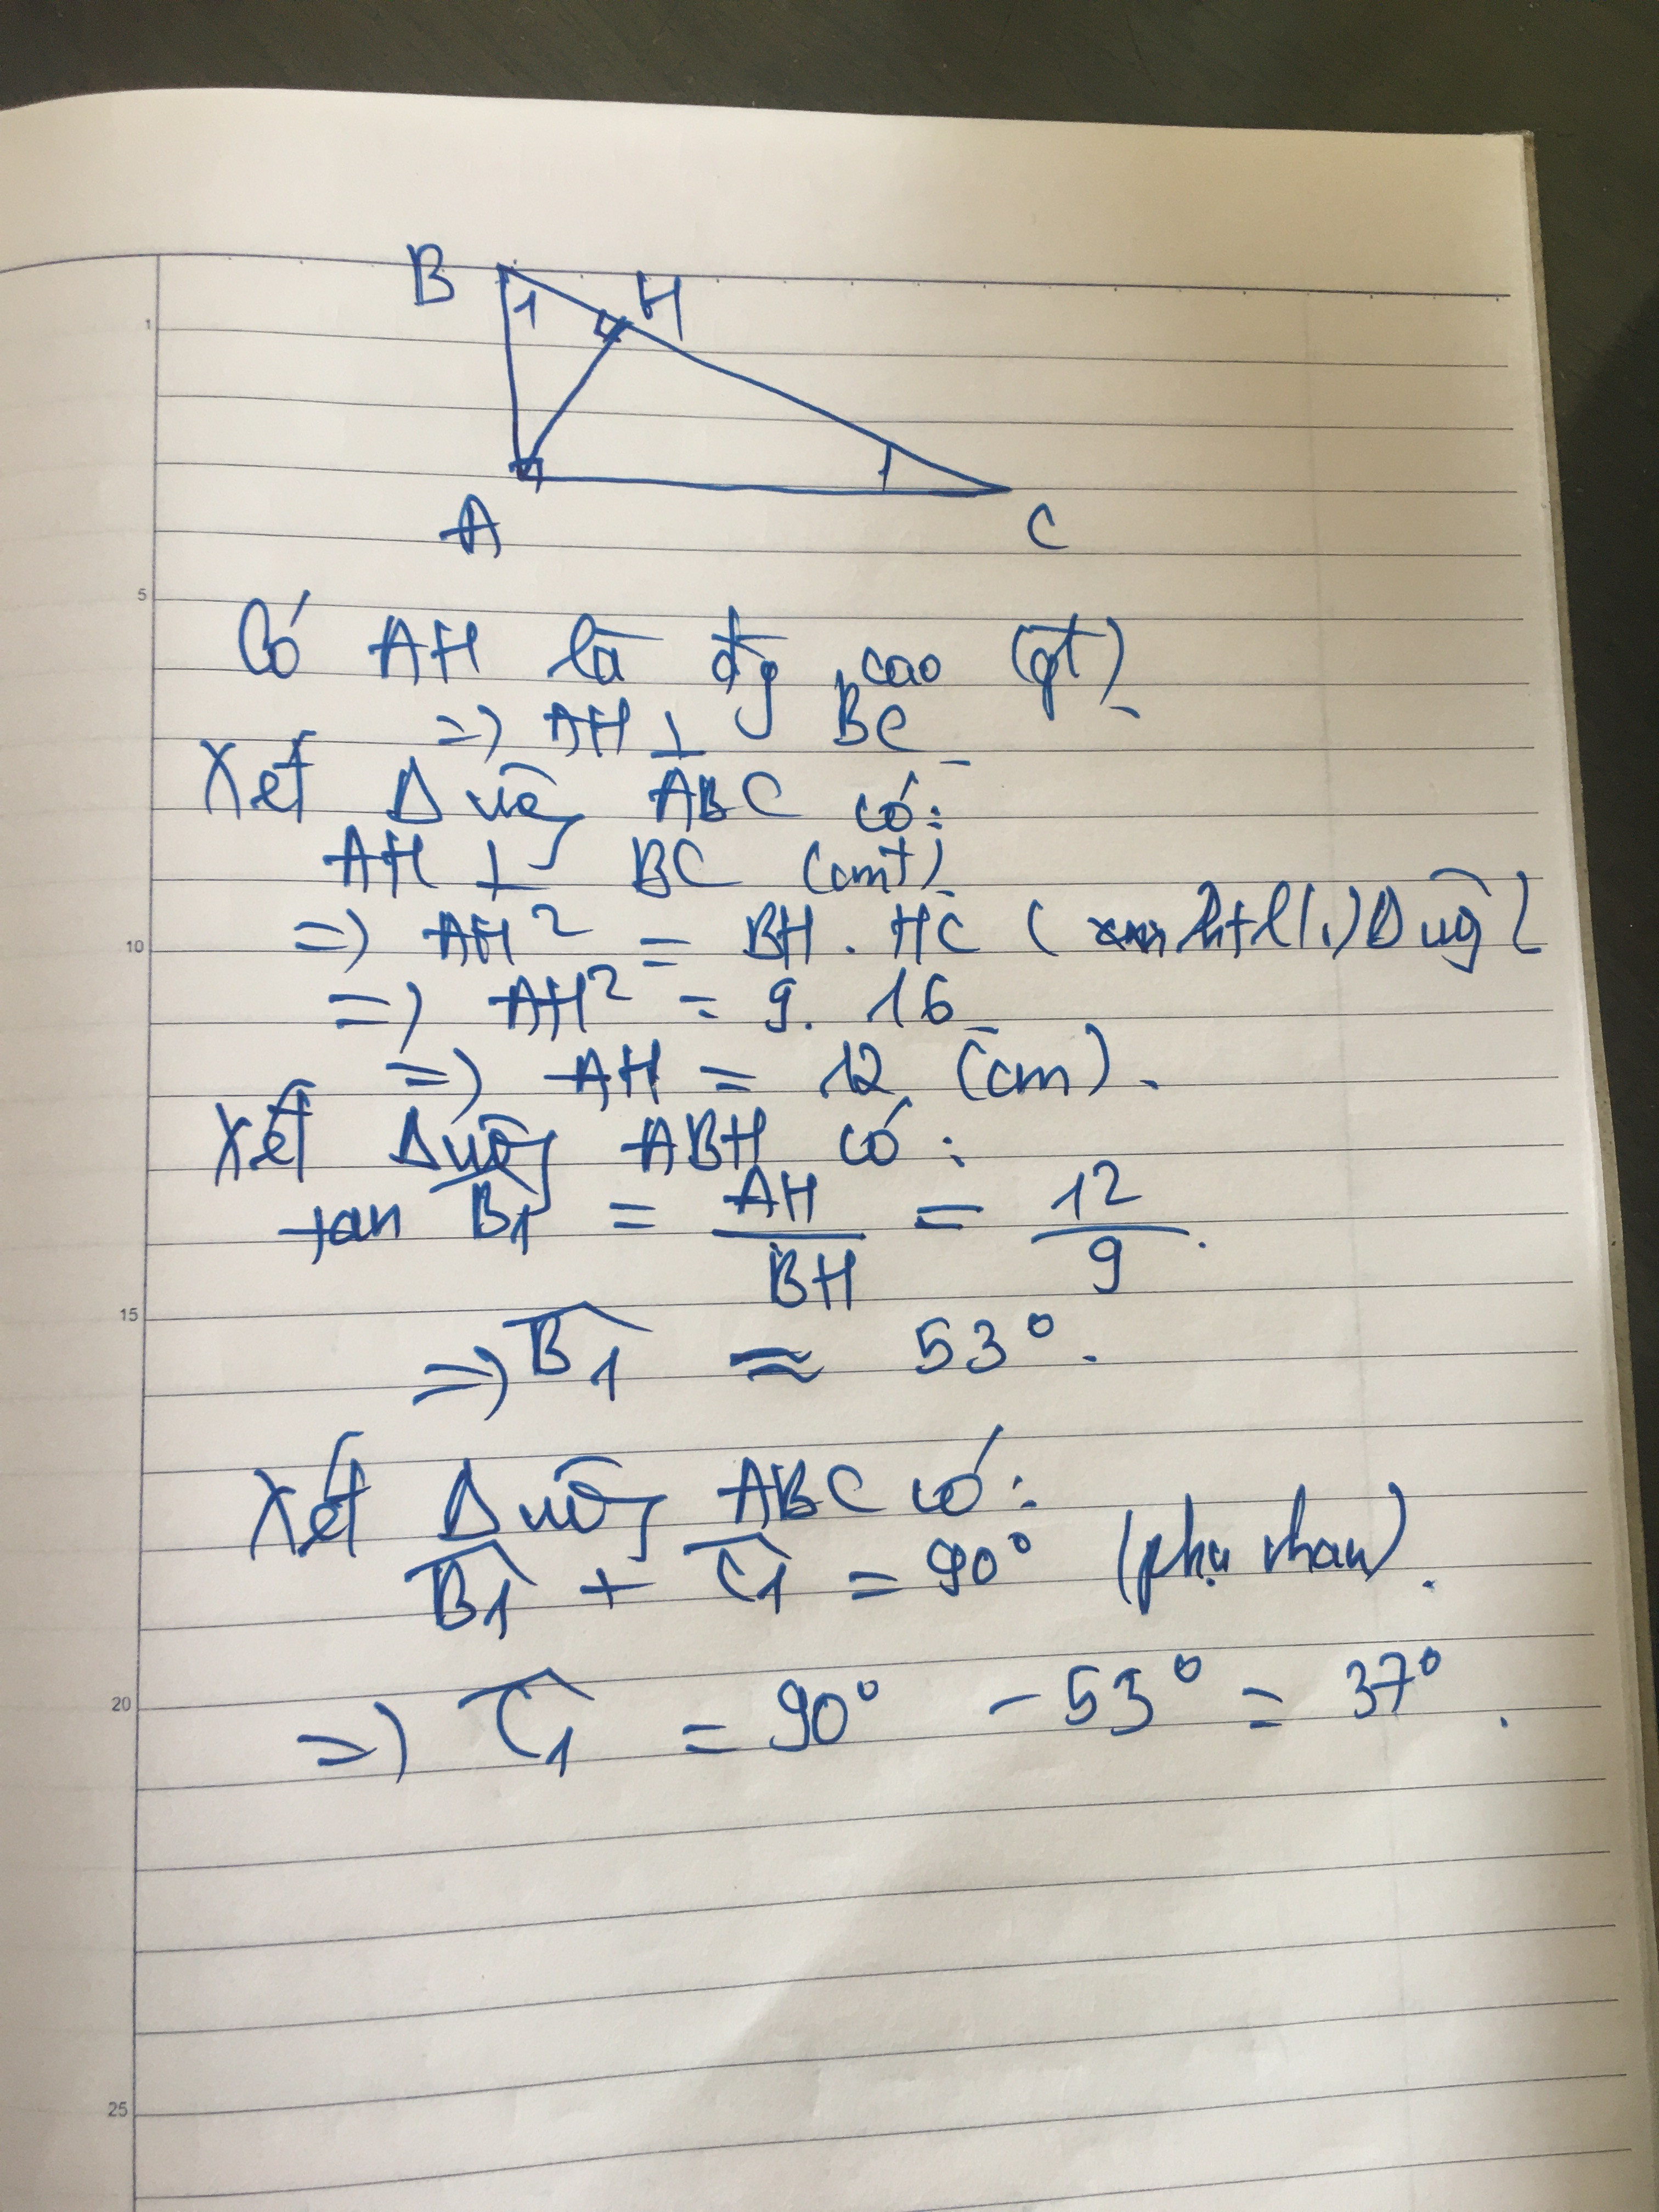 B 1 H
A 1 C
1
5
10
15
20
25
Có AH là đg cao (gt).
=> AH ⊥ BC
Xét Δ vuông ABC có:
AH ⊥ BC (cmt)
=> AH² = BH . HC ( htl Δ vuông
=> AH² = 9. 16
=> AH = 12 (cm).
Xét Δ vuông ABH có:
tan B̂1 = AH/BH = 12/9.
=> B̂1 ≈ 53°.
Xét Δ vuông ABC có:
B̂1 + Ĉ1 = 90° (phụ nhau).
=> Ĉ1 = 90° - 53° = 37°.